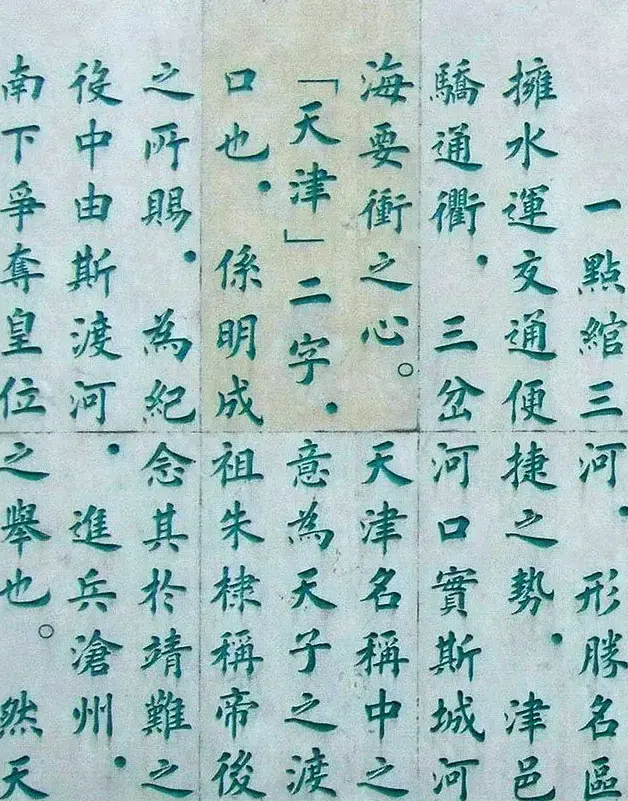 一點綰三河．形勝名區
擁水運交通便捷之勢．津邑
驕通衢．三岔河口實斯城河
海要衝之心。天津名稱中之
「天津」二字．意為天子之渡
口也．係明成祖朱棣稱帝後
之所賜．為紀念其於靖難之
役中由斯渡河．進兵滄州．
南下爭奪皇位之舉也。然天